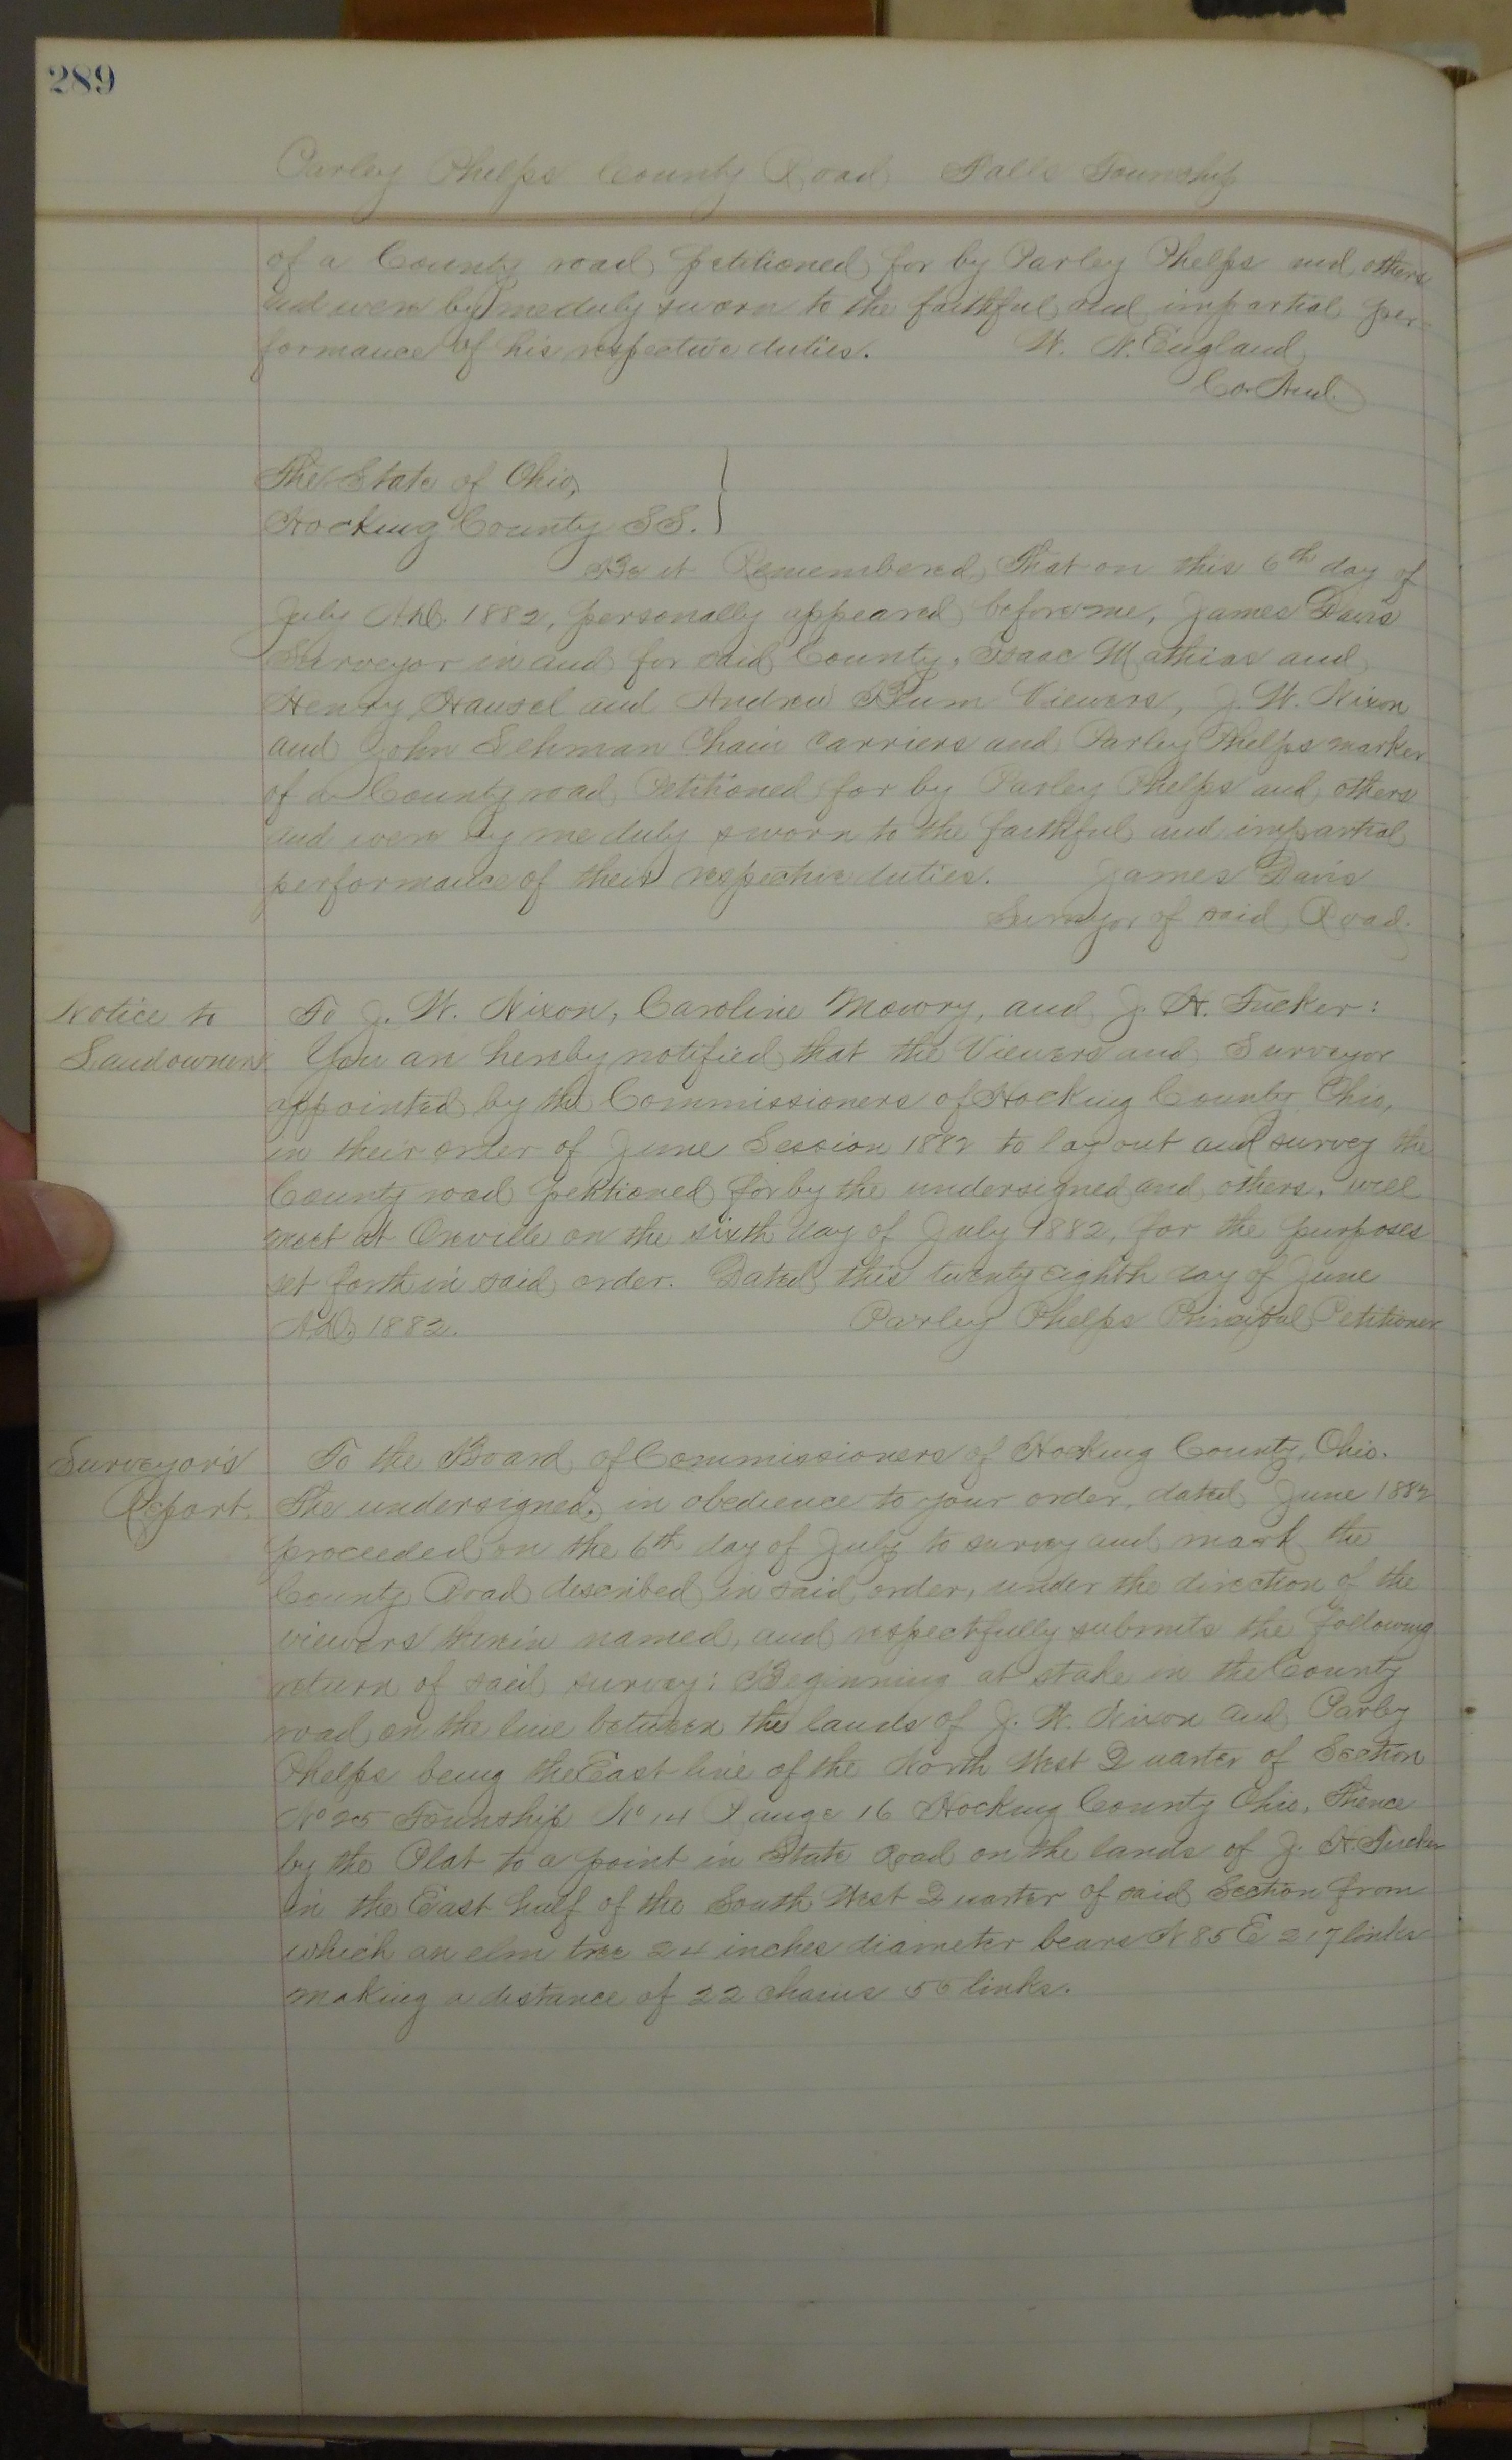 289
Parley Phelps County Road Falls Township
of a County road petitioned for by Parley Phelps and others
and were by me duly sworn to the faithful and impartial per-
formance of his respective duties. W. N. England
Co. Aud.
The State of Ohio,
Hocking County SS.
Be it Remembered, That on this 6th day of
July A.D. 1882, personally appeared before me, James Davis
Surveyor in and for said County, Isaac Mathias and
Henry Hansel and Andrew Blum Viewers, J. W. Nixon
and John Lehman Chain Carriers and Parley Phelps marker
of a County road Petitioned for by Parley Phelps and others
and were by me duly sworn to the faithful and impartial
performance of their respective duties. James Davis
Surveyor of said Road.
Notice to
Landowners
To J. W. Nixon, Caroline Mowry, and J. H. Tucker:
You are hereby notified that the Viewers and Surveyor
appointed by the Commissioners of Hocking County Ohio,
in their order of June Session 1882 to lay out and survey the
County road petitioned for by the undersigned and others, will
meet at on the sixth day of July 1882, for the purposes
set forth in said order. Dated this twenty eighth day of June
A.D. 1882. Parley Phelps Principal Petitioner
Surveyor's
Report.
To the Board of Commissioners of Hocking County, Ohio.
The undersigned, in obedience to your order, dated June 1882
proceeded on the 6th day of July to survey and mark the
County Road described in said order, under the direction of the
viewers therein named, and respectfully submits the following
return of said survey: Beginning at stake in the County
road on the line between the lands of J. W. Nixon and Parley
Phelps being the East line of the North West Quarter of Section
No 25 Township No 14 Range 16 Hocking County Ohio, Thence
by the Plat to a point in State Road on the lands of J. H. Tucker
in the East half of the South West Quarter of said Section from
which an elm tree 24 inches diameter bears N 85 E 217 links
making a distance of 22 chains 56 links.